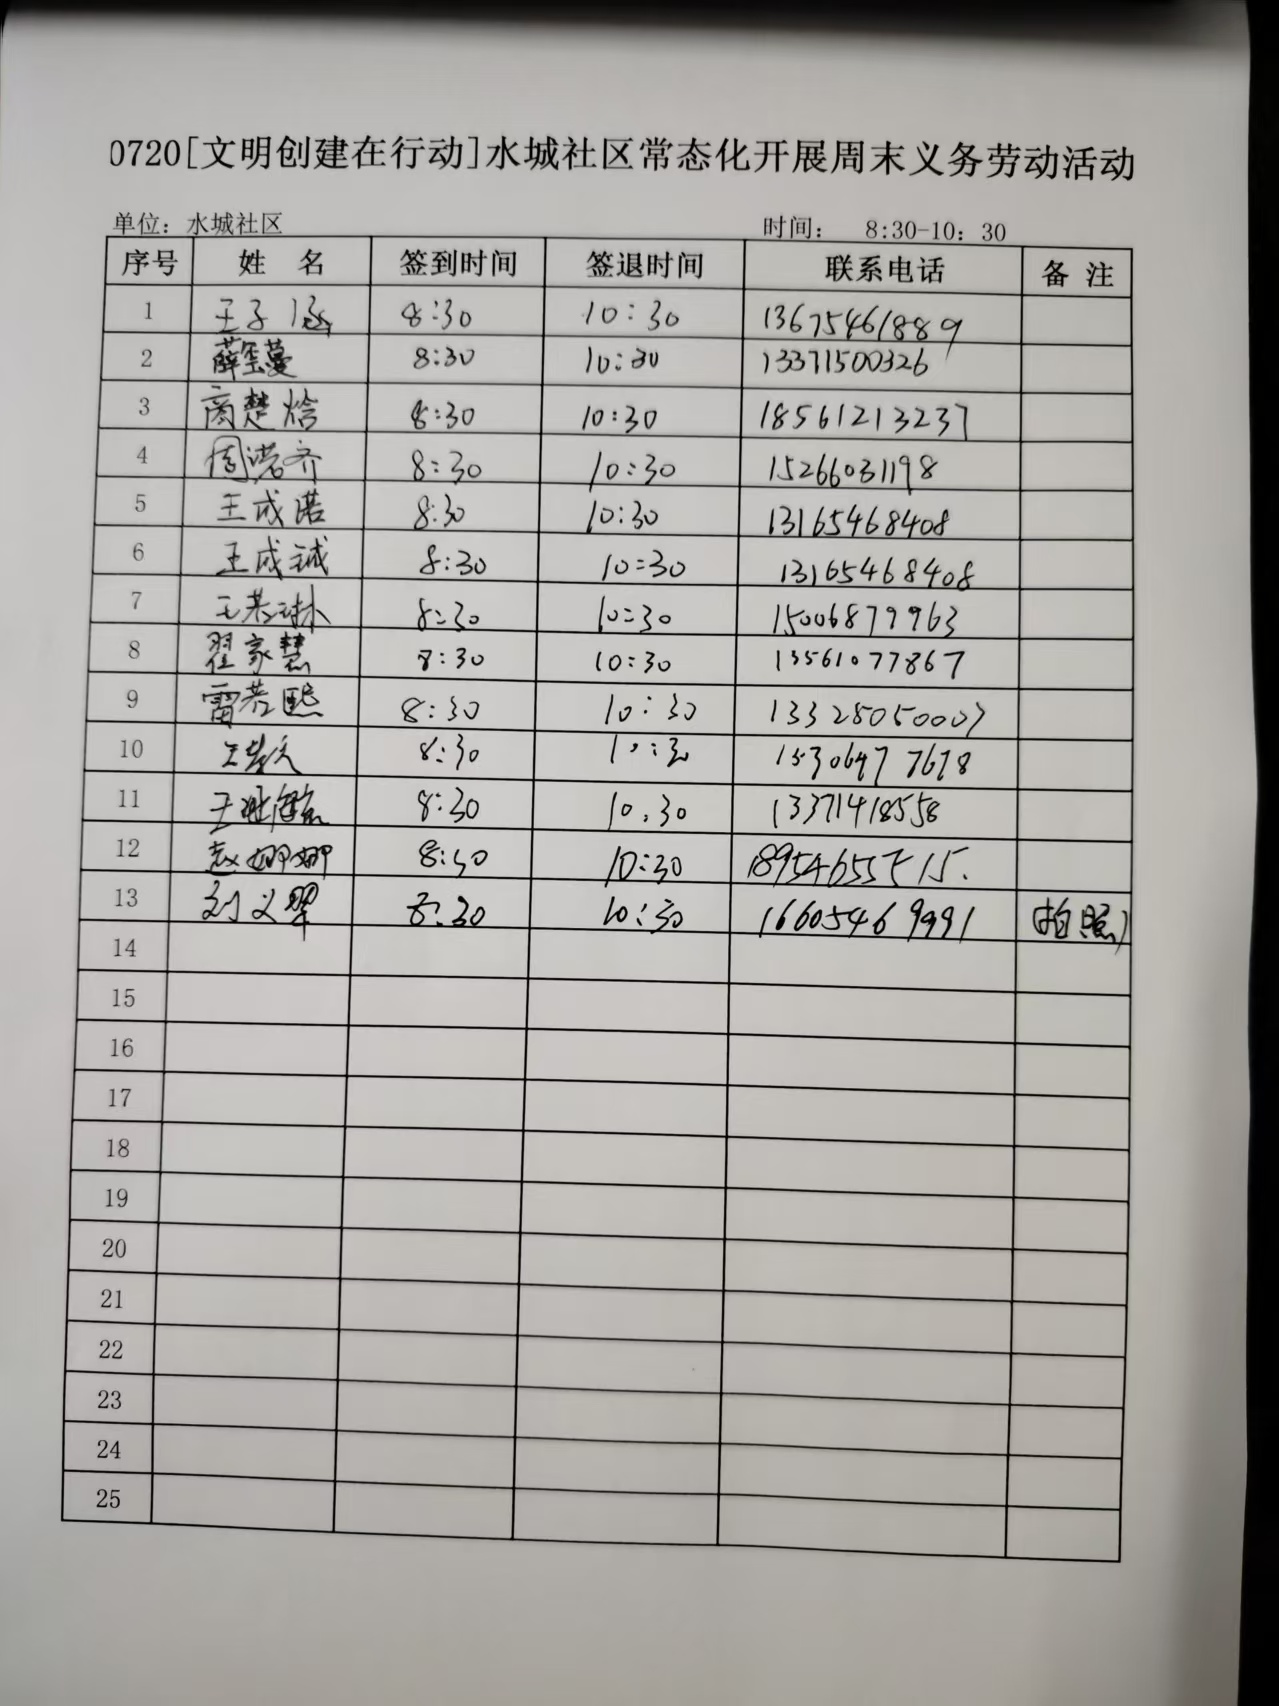 0720[文明创建在行动]水城社区常态化开展周末义务劳动活动
单位：水城社区 时间： 8:30-10：30
序号 姓 名 签到时间 签退时间 联系电话 备 注
1 王子涵 8:30 10:30 13675461889
2 薛玺蔓 8:30 10:30 13371500326
3 商楚焓 8:30 10:30 18561213237
4 周诺齐 8:30 10:30 15266031198
5 王成诺 8:30 10:30 13165468408
6 王成诚 8:30 10:30 13165468408
7 王若琳 8:30 10:30 15006879963
8 翟家慧 8:30 10:30 13561077867
9 雷若熙 8:30 10:30 13328050007
10 8:30 10:30
11 8:30 10.30 13371418558
12 赵娜娜 8:30 10:30
13 刘义翠 8:30 10:30 16605469991 (拍照)
14
15
16
17
18
19
20
21
22
23
24
25